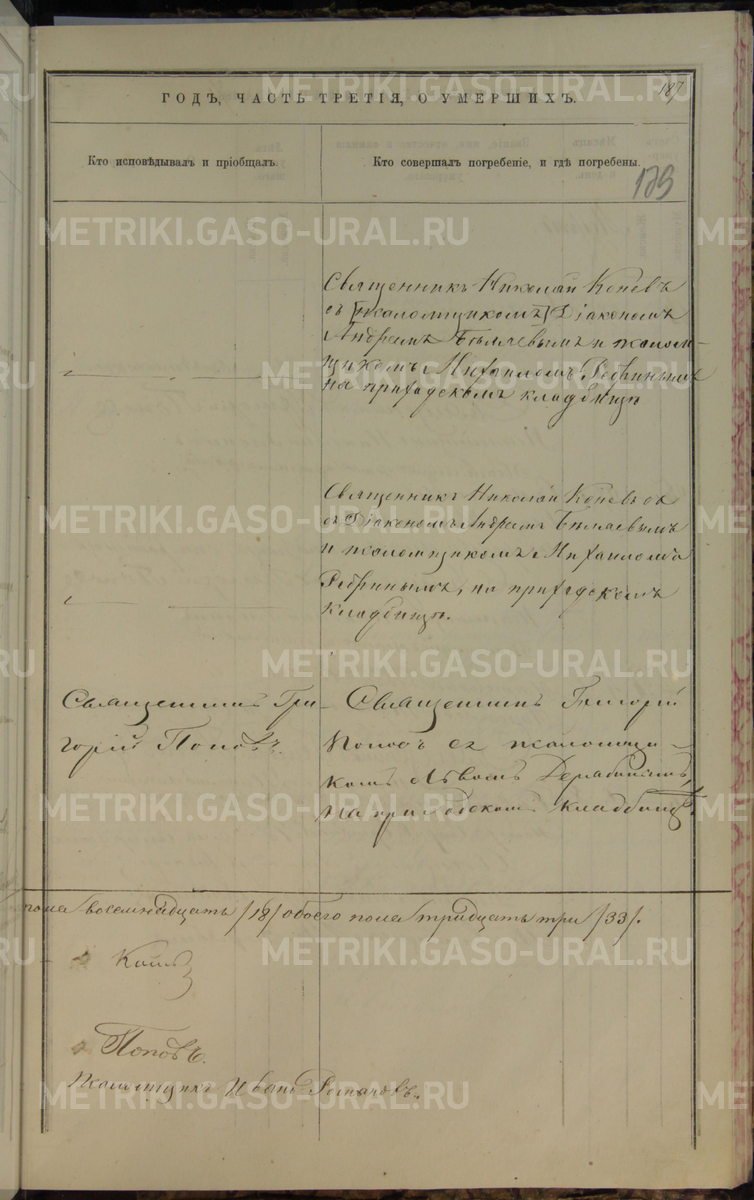 187
ГОДЪ, ЧАСТЬ ТРЕТІЯ, О УМЕРШИХЪ.
Кто исповѣдывалъ и пріобщалъ.
Кто совершалъ погребеніе, и гдѣ погребены.
Священникъ Николай Коневъ
съ [псаломщикомъ] Діакономъ
Андреемъ Бѣляевымъ и псалом-
щикомъ Михаиломъ
на приходскомъ кладбищѣ
Священникъ Николай Коневъ съ
съ Діакономъ Андреемъ Бѣляевымъ
и псаломщикомъ Михаиломъ
на приходскомъ
кладбищѣ.
Священникъ Гри-
горій Поповъ.
Священникъ Григорій
Поповъ съ псаломщи-
комъ Львомъ Дерябинымъ,
на приходскомъ кладбищѣ.
пола восемнадцать /18/ обоего пола тридцать три /33/.
Поповъ.
Псаломщикъ Иванъ
METRIKI.GASO-URAL.RU